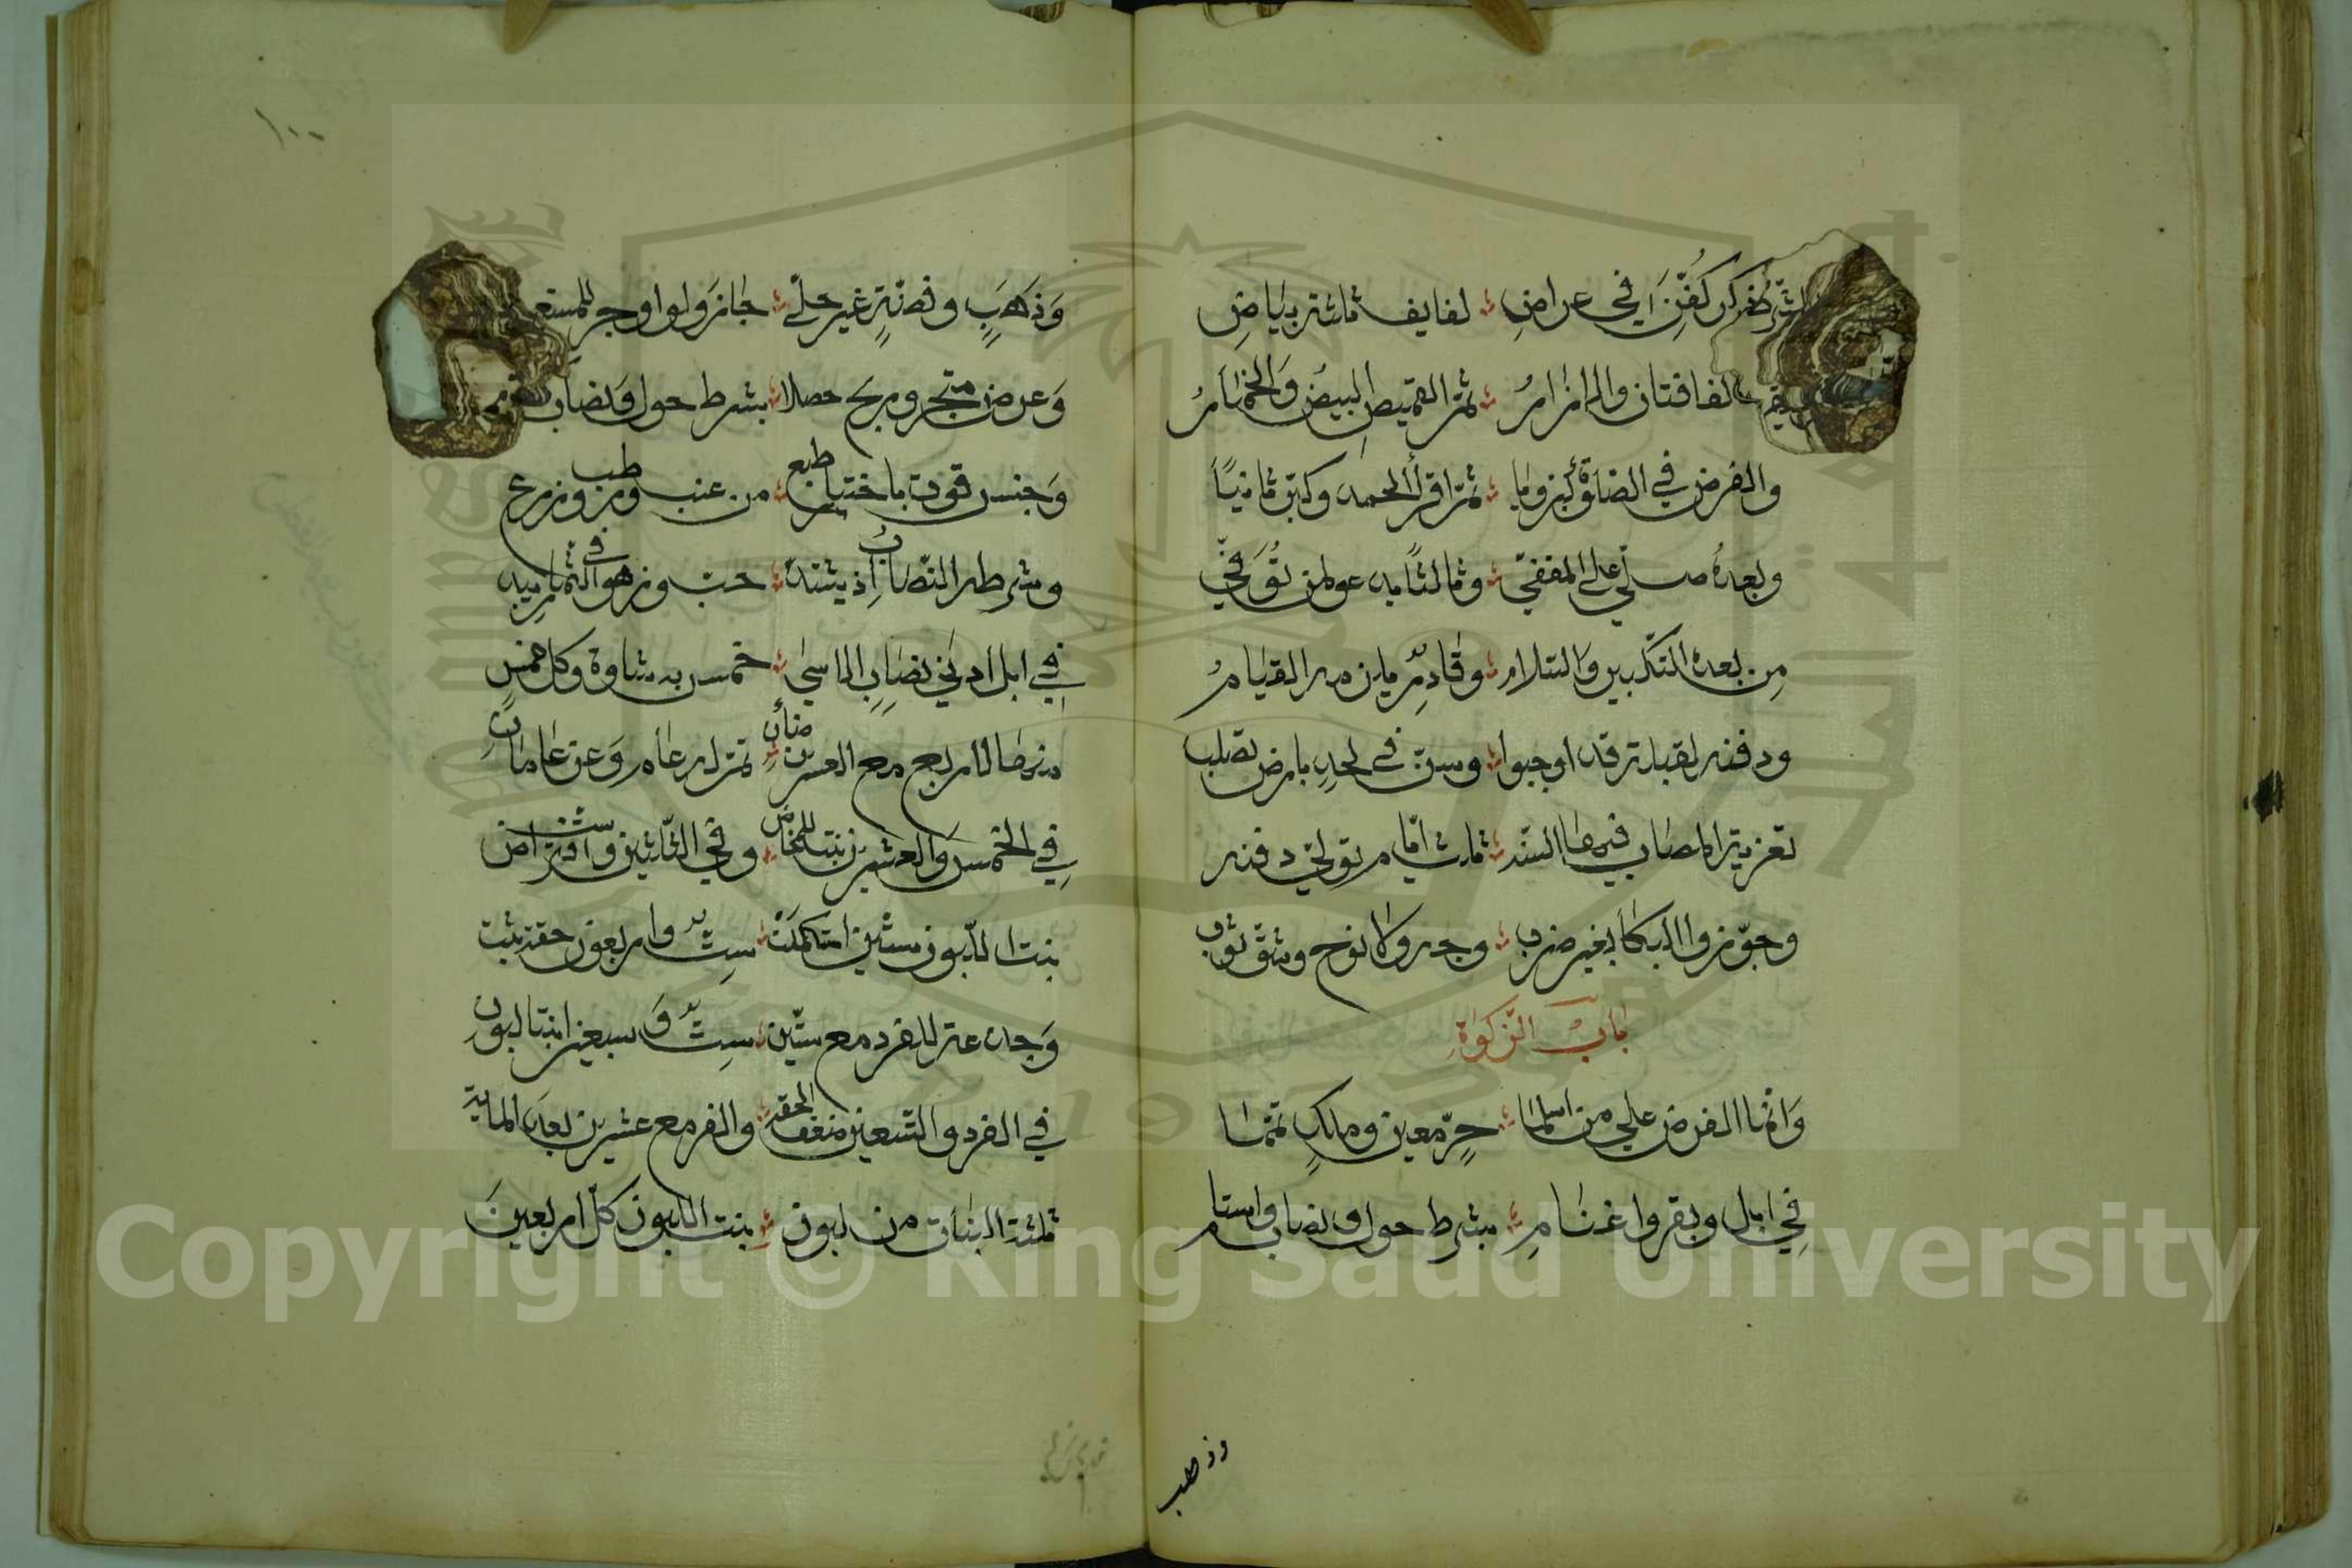 ذكر كفن في عراض لفايف ثلثة بياض
لفافتان والازار ثم القميص البيض والخمار
والفرض في الصلوة كبر ناويا ثم اقرا الحمد وكبر ثانيا
وبعده صلي علي المقفي وثالثا يدعو لمن توفي
من بعده التكبير والسلام وقادر يلزمه القيام
ودفنه لقبلة قد اوجبوا وسن في لحد بارض تصلب
تعزية المصاب فيها السنه ثلاث ايام توالي دفنه
وجوزوا البكا بغير ضرب وجه ولا نوح وشق ثوب
باب الزكوة
وانما الفرض علي من اسلما حر معين وملك تمما
في ابل وبقر واغنام بشرط حول ونصاب واستام
وذهب
١٠٠
وذهب وفضة غير حلي جاز ولو اوجر للمستعمل
وعرض متجر وربح حصلا بشرط حول ونصاب
وجنس قوت باختيار طبع من عنب ورطب وزرع
وشرط النصاب اذ يشتد حب وزهو في الثمار يبدو
في ابل ادني نصاب الاسي خمس به شاة وكل خمس
منها لاربع مع العشرين ضان تم له عام وعنز عامان
في الخمس والعشرين بنت للمخاض وفي الثلثين وست افتراض
بنت اللبون سنتين استكملت ست واربعون حقة ثبت
وجذعة للفرد مع ستين ست وسبعين ابنتا لبون
في الفرد والتسعين ضعف الحقه والفرد مع عشرين بعد المايه
ثلثة البنات من لبون بنت اللبون كل اربعين
Copyright © King Saud University